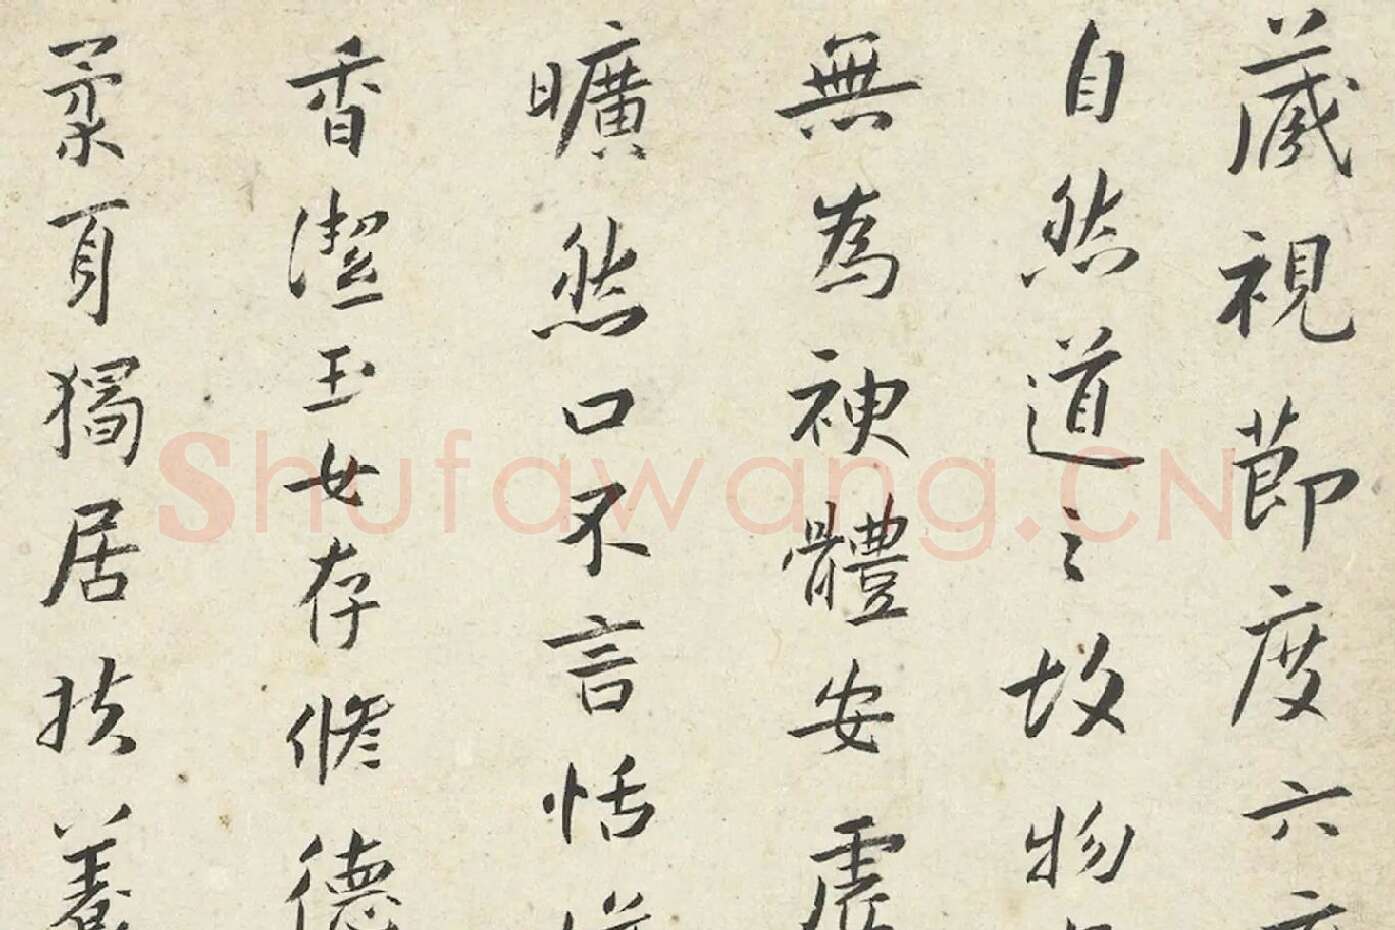 藏視節度六
自然道之故物
無為神體安虛
曠然口不言恬
香潔玉女存修德
柔身獨居扶養
Shufawang.CN